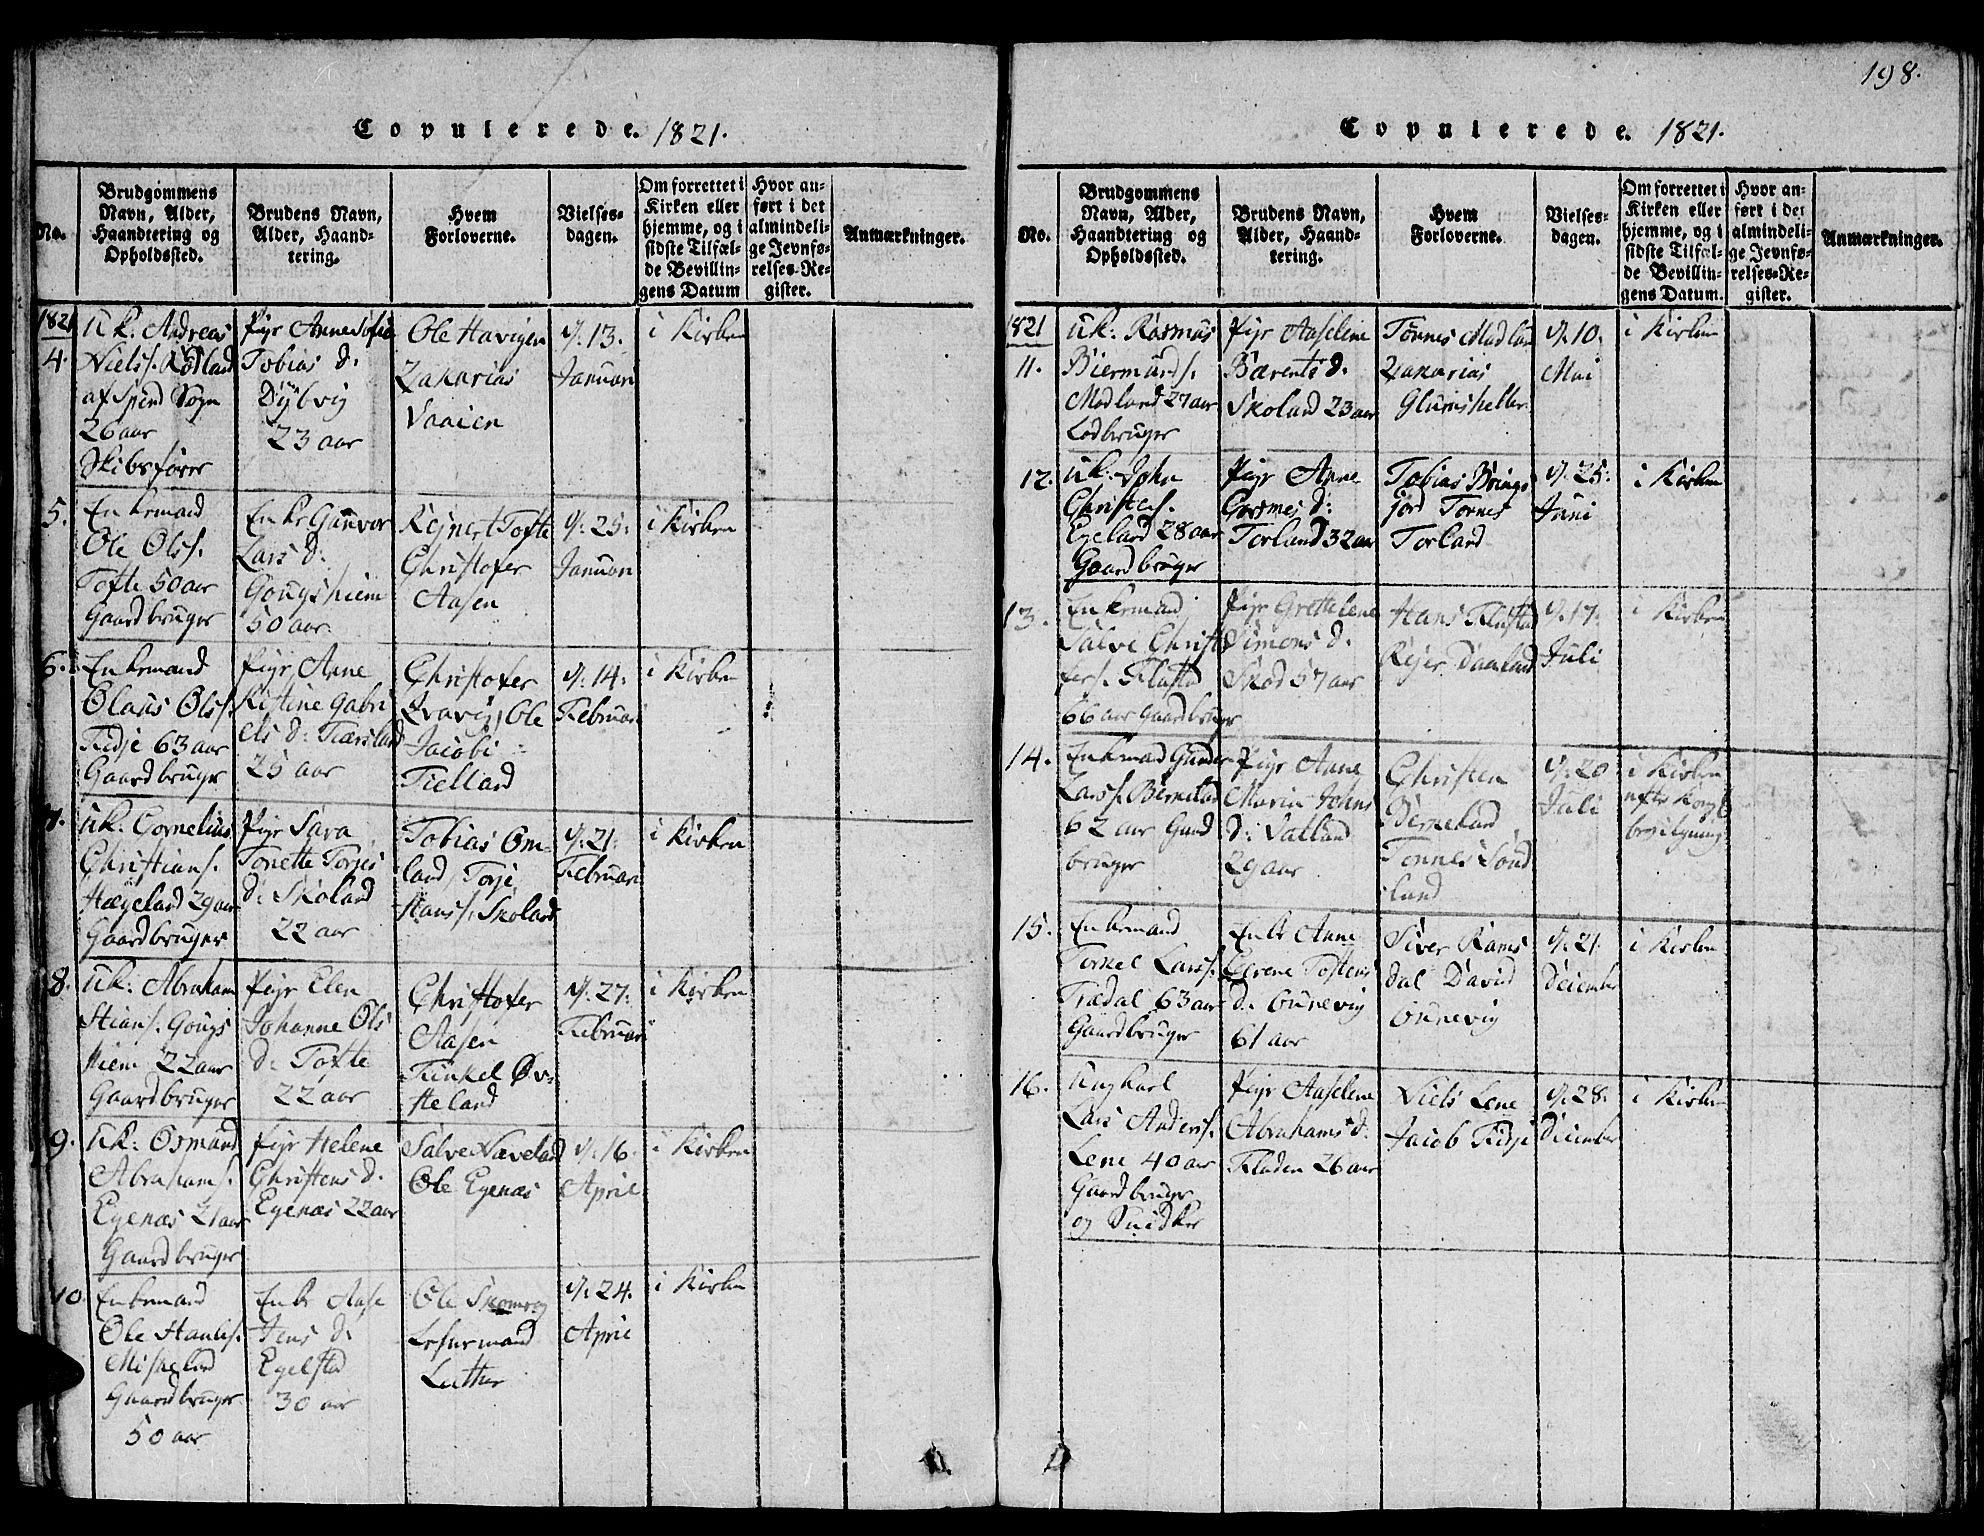 198.
Copulerede. 1821.
No.
Brudgommens Navn, Alder, Haandtering og Opholdssted.
Brudens Navn, Alder, Haandtering.
Hvem Forloverne.
Vielses-dagen.
Om forrettet i Kirken eller hjemme, og i sidste Tilfælde Bevillingens Datum
Hvor anført i det almindelige Jevnførelses-Register.
Anmærkninger.
1821
4.
Uk: Andreas
Niels s. Rødland
af Spind Sogn
26 aar
Skibsfører
Pige Anne Sofia
Tobias d:
Dÿbvig
23 aar
Ole Havigen
Zakarias
Vaaien
d: 13.
Januari
i Kirken
5.
Enkemand
Ole Ols s.
Tofte 50 aar
Gaardbruger
Enke Gunvor
Lars d:
Gougshiem
50 aar.
Rejnert Tofte
Christofer
Aasen
d: 25:
Januari
i Kirken
6.
Enkemand
Olaus Ols s.
Fidje 63 aar
Gaardbruger
Pige Anne
Kistine Gabri
els d: Fiærsland
25 aar
Christofer
Qvavig, Ole
Jacobi
Fielland
d: 14:
Februari
i Kirken
7.
Uk: Cornelius
Christian s.
Hægeland 29 aar
Gaardbruger
Pige Sara
Tonette Torjes
d: Skoland
22 aar
Tobias Om-
land, Torje
Hans s. Skoland
d: 21:
Februari
i Kirken
8.
Uk: Abraham
Stian s. Gougs
hiem 22 aar
Gaardbruger
Pige Elen
Johanne Ols
d: Tofte
22 aar
Christofer
Aasen
Tünkel Øv-
steland
d: 27:
Februari
i Kirken
9.
Uk: Osmund
Abraham s.
Egenæs 21 aar
Gaardbruger
Pige Helene
Christens d.
Egenæs 22 aar
Salve Naveland
Ole Egenæs
d: 16.
April
i Kirken
10
Enkemand
Ole Stanle s.
Miskeland
Gaardbruger
50 aar
Enke Aase
Jens d:
Egelstad
30 aar
Ole Skomrag
Lehnsmand
Luther
d: 24.
April
i Kirken
Copulerede. 1821.
No.
Brudgommens Navn, Alder, Haandtering og Opholdssted.
Brudens Navn, Alder, Haandtering.
Hvem Forloverne.
Vielses-dagen.
Om forrettet i Kirken eller hjemme, og i sidste Tilfælde Bevillingens Datum.
Hvor anført i det almindelige Jevnførelses-Register.
Anmærkninger.
1821
11.
Uk: Rasmus
Biermund s.
Modland 27 aar
Lodbruger
Pige Aaselene
Bærents d.
Skoland 23 aar
Tønnes Modland
Zakarias
d: 10.
Mai
i Kirken
12.
Uk: John
Christen s.
Egeland 28 aar
Gaardbruger
Pige Anne
Gosmes d:
Torland 32 aar
Tobias Brings
jord Tornes
Torland
d: 25:
Juni
i Kirken
13.
Enkemand
Salve Christo
fer s. Flustad
66 aar Gaardbruger
Pige Grethelene
Simons d.
Skod 57 aar
Hans Flustad
Rejer Daaland
d: 17:
Juli
i Kirken
14.
Enkemand Gunder
Lars s. Birkeland
62 aar Gaard
bruger
Pige Anne
Maria Johns
d: Vatland
29 aar
Christen
Birkeland
Tønnes Sønd
land
d: 20
Juli
i Kirken
efter Kongl
bevilgning
15.
Enkemand
Torkel Lars s.
Tiædal 63 aar
Gaardbruger
Enke Anne
Elrene Tostens
d: Ounevig
61 aar
Siver Rams
dal David
Ounevig
d: 21
December
i Kirken
16.
Ungkarl
Lars Anders s.
Lene 40 aar
Gaardbruger
og Snidker
Pige Aaselene
Abrahams d.
Fladen 26 aar
Niels Lene
Jacob Fidje
d: 28:
December
i Kirken